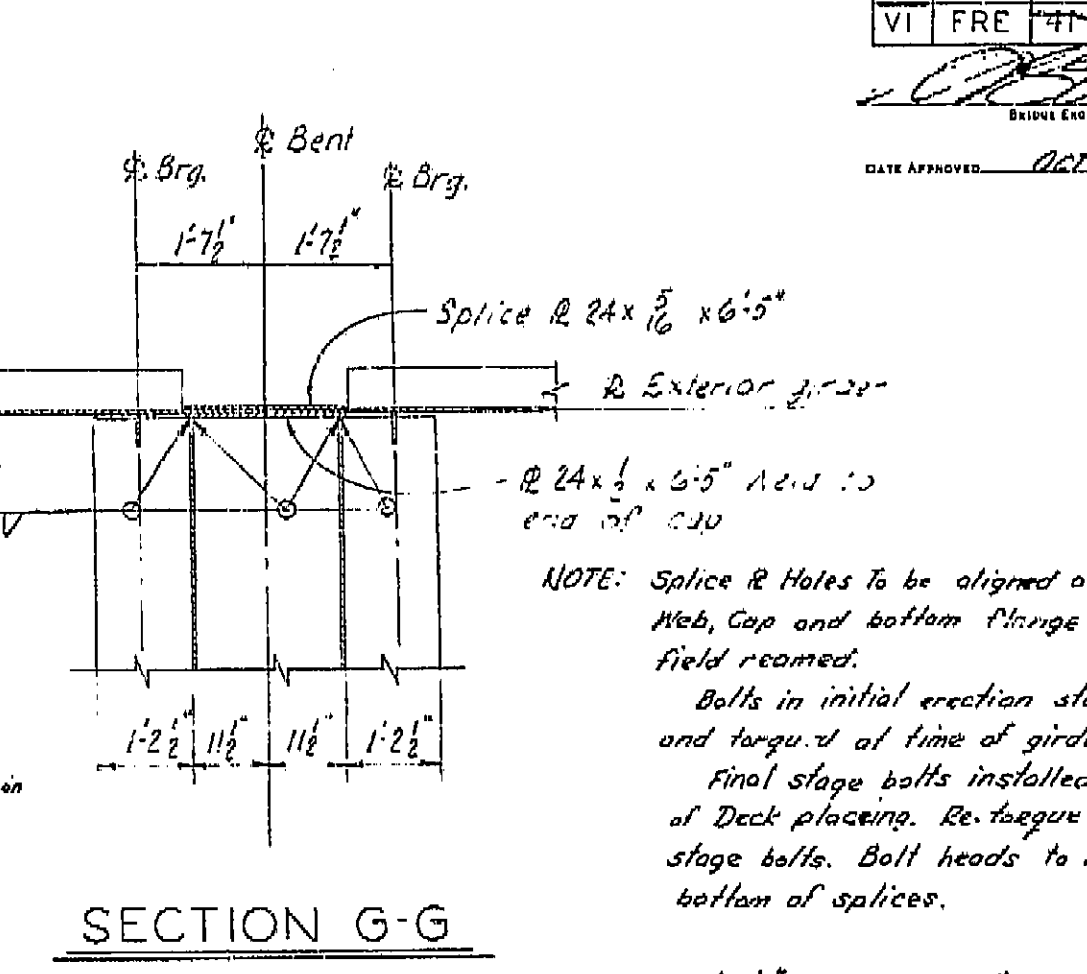 VI FRE 41
BRIDGE ENG
DATE APPROVED OCT
℄ Bent
℄ Brg.
℄ Brg.
1'-7½"
1'-7½"
Splice ℙ 24 x 5/16 x 6'-5"
ℙ Exterior girder
ℙ 24 x ½ x 6'-5" Weld to
end of cap
NOTE: Splice ℙ Holes To be aligned
Web, Cap and bottom flange
field reamed.
Bolts in initial erection
and torqu.d at time of
Final stage bolts installed
of Deck placeing. Re-torque
stage bolts. Bolt heads to
bottom of splices.
1'-2½" 11½" 11½" 1'-2½"
on
SECTION G-G